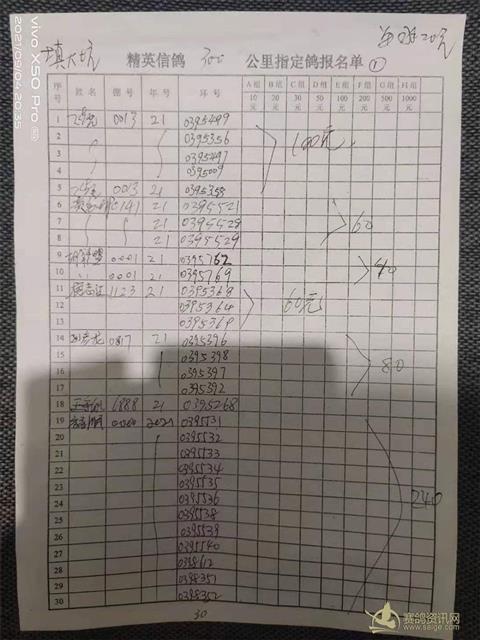 每羽20元
填大坑
精英信鸽 300 公里指定鸽报名单 ①
序号 姓名 棚号 年号 环号 A组10元 B组20元 C组30元 D组50元 E组100元 F组200元 G组500元 H组1000元
1 0013 21 0395499
2 0395356 100元
3 0395497
4 0395009
5 0013 21 0395355
6 0141 21 0395521
7 21 0395528 60
8 21 0395529
9 0001 21 0395762
10 0001 21 0395769 40
11 1123 21 0395368
12 0395364 60元
13 0395369
14 0817 21 0395396
15 0395398
16 0395397 80
17 0395392
18 6888 21 0395268
19 2021 0395531
20 0395532
21 0395533
22 0395534
23 0395535
24 0395536 240
25 0395538
26 0395539
27 0395540
28 0398612
29 0398351
30 0398352
30
vivo X50 Pro
2021/09/04 20:35
赛鸽资讯网
www.saige.com